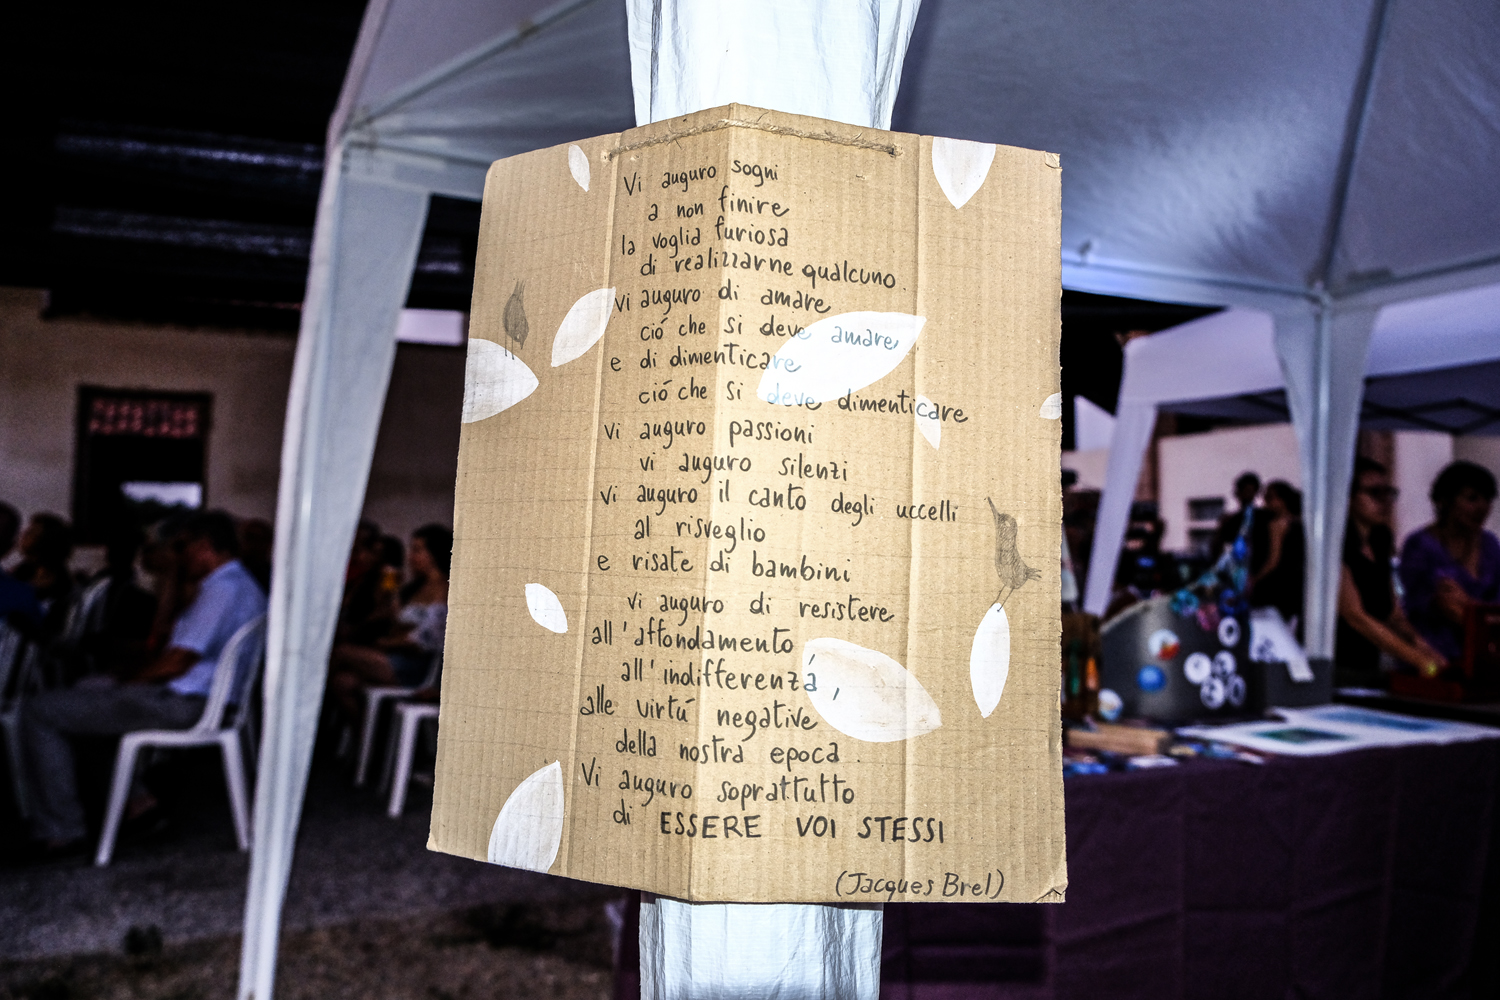 Vi auguro sogni
a non finire
la voglia furiosa
di realizzarne qualcuno.
vi auguro di amare
ció che si deve amare
e di dimenticare
ció che si deve dimenticare
vi auguro passioni
vi auguro silenzi
vi auguro il canto degli uccelli
al risveglio
e risate di bambini
vi auguro di resistere
all'affondamento,
all'indifferenza,
alle virtú negative
della nostra epoca.
Vi auguro soprattutto
di ESSERE VOI STESSI
(Jacques Brel)